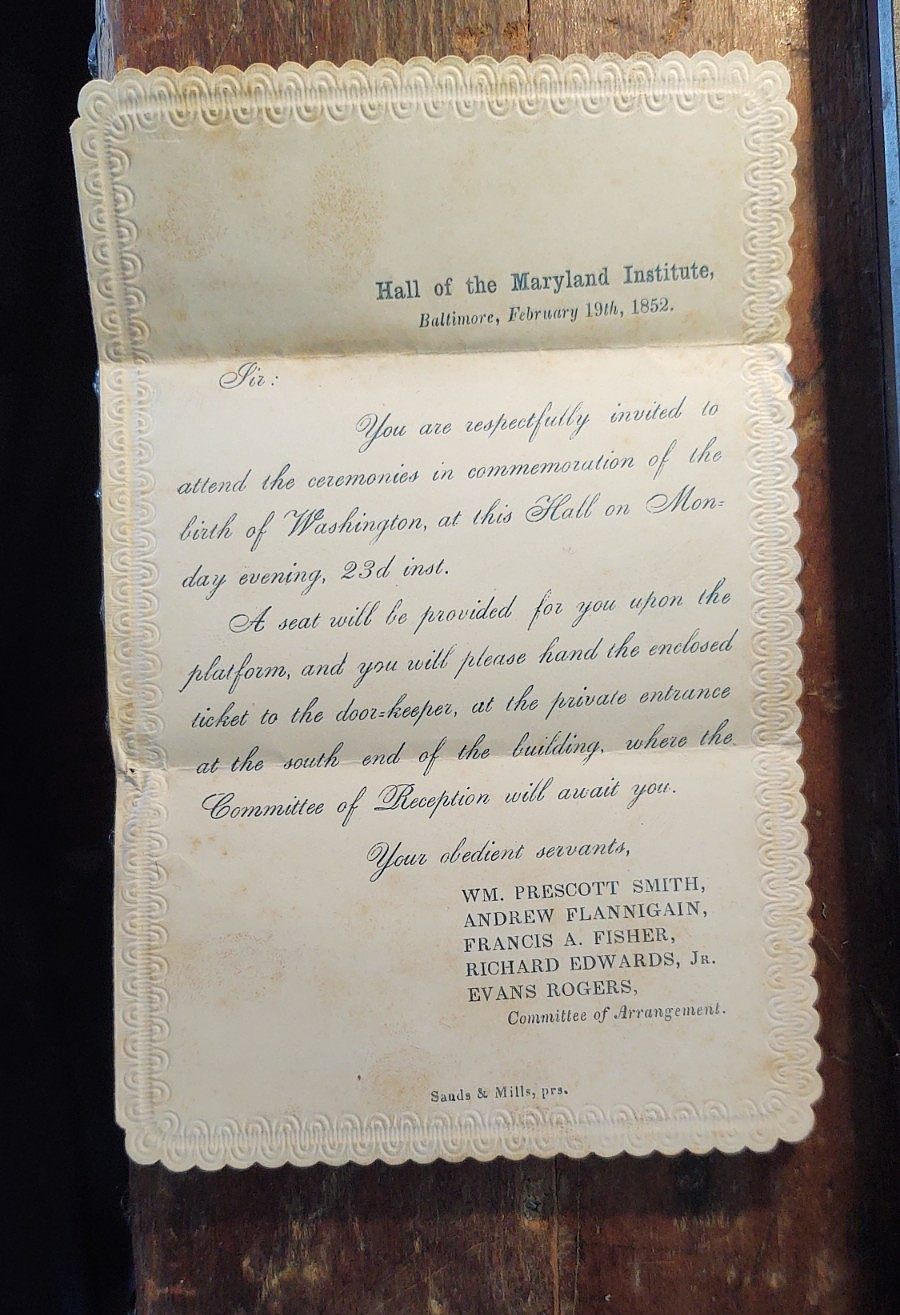 Hall of the Maryland Institute,
Baltimore, February 19th, 1852.
Sir:
You are respectfully invited to
attend the ceremonies in commemoration of the
birth of Washington, at this Hall on Mon=
day evening, 23d inst.
A seat will be provided for you upon the
platform, and you will please hand the enclosed
ticket to the door=keeper, at the private entrance
at the south end of the building, where the
Committee of Reception will await you.
Your obedient servants,
WM. PRESCOTT SMITH,
ANDREW FLANNIGAIN,
FRANCIS A. FISHER,
RICHARD EDWARDS, JR.
EVANS ROGERS,
Committee of Arrangement.
Sands & Mills, prs.